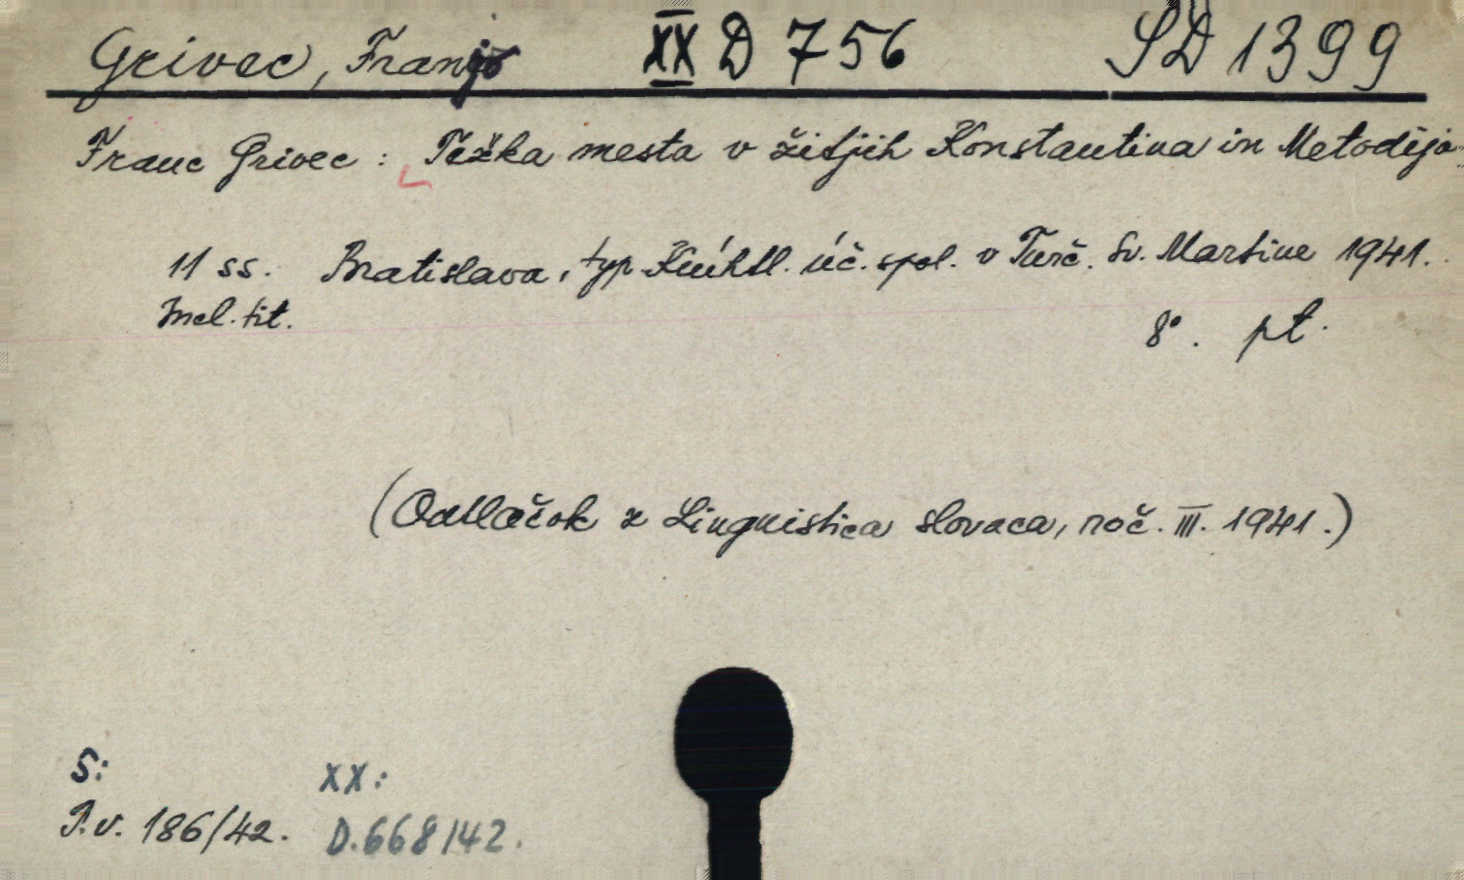 Grivec, Franjo XX D 756 SD 1399
Franc Grivec : Težka mesta v žitjih Konstantina in Metodija.
11 ss. Bratislava, typ. Kníhtl. úč. spol. v Turč. Sv. Martine 1941.
Incl. tit. 8°. pt.
(Odtlačok z Linguistica slovaca, roč. III. 1941.)
S: XX:
P.v. 186/42. D.668/42.